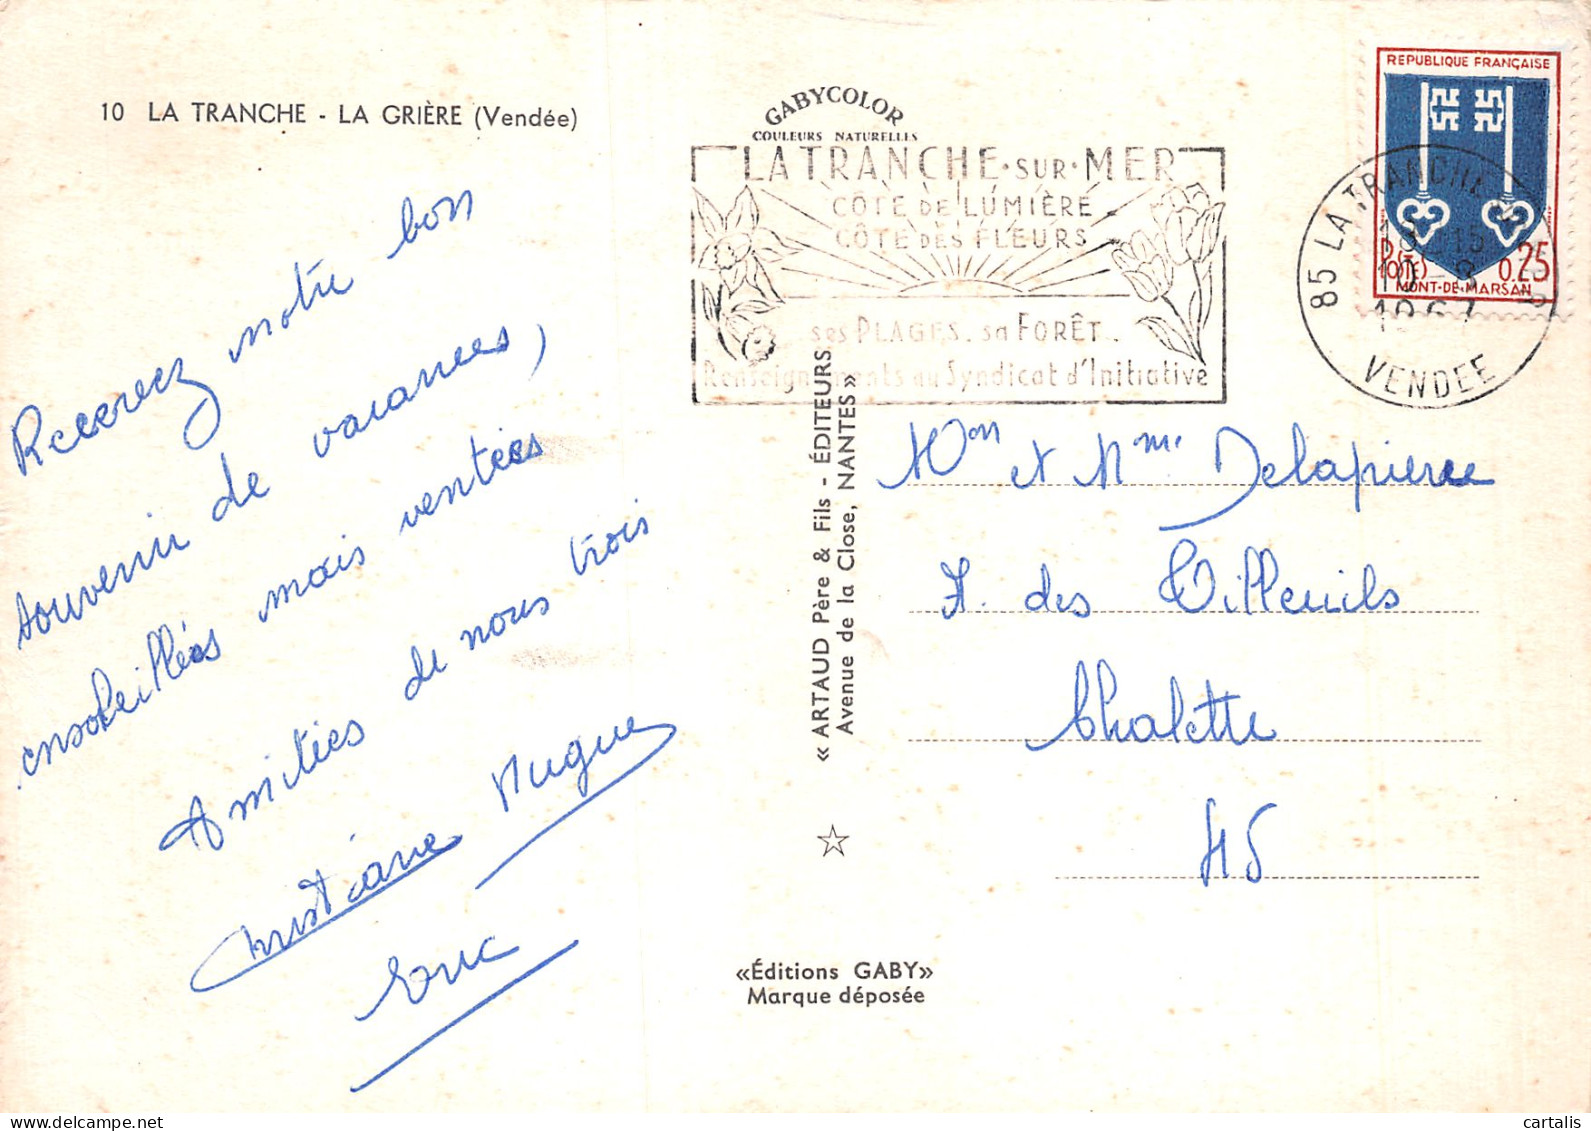 10 LA TRANCHE - LA GRIÈRE (Vendée)
Recevez notre bon
souvenir de vacances,
ensoleillées mais ventées
Amitiés de nous trois
Christiane Hugues
GABYCOLOR
COULEURS NATURELLES
LA TRANCHE·SUR·MER
CÔTE DE LUMIÈRE
CÔTE DES FLEURS
ses PLAGES. sa FORÊT.
Renseignements au Syndicat d'Initiative
« ARTAUD Père & Fils - ÉDITEURS
Avenue de la Close, NANTES »
«Éditions GABY»
Marque déposée
REPUBLIQUE FRANÇAISE
POSTES 0,25
MONT-DE-MARSAN
85 LA TRANCHE
1967
VENDEE
Mon et Mme Delapierre
des Tilleuils
Chalette
45
cartalis